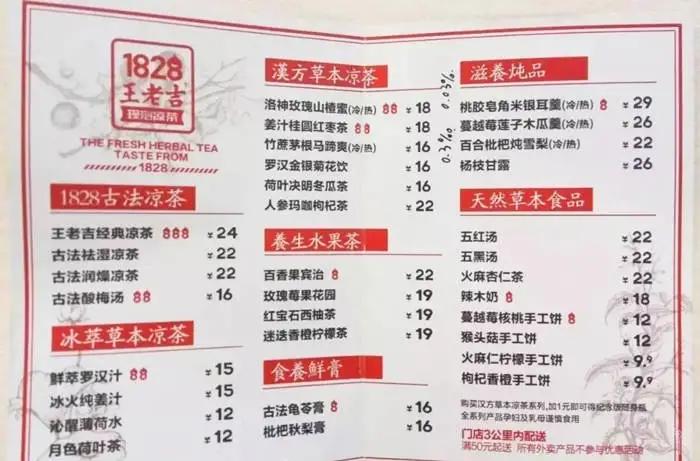 1828
王老吉
现泡凉茶
THE FRESH HERBAL TEA
TASTE FROM
1828
1828古法凉茶
王老吉经典凉茶 ¥24
古法祛湿凉茶 ¥22
古法润燥凉茶 ¥22
古法酸梅汤 ¥16
冰萃草本凉茶
鲜萃罗汉汁 ¥15
冰火纯姜汁 ¥15
沁醒薄荷水 ¥12
月色荷叶茶 ¥12
漢方草本凉茶
洛神玫瑰山楂蜜(冷/热) ¥18
姜汁桂圆红枣茶 ¥18
竹蔗茅根马蹄爽(冷/热) ¥16
罗汉金银菊花饮 ¥16
荷叶决明冬瓜茶 ¥16
人参玛咖枸杞茶 ¥22
0.3‰ 0.03%.
養生水果茶
百香果宾治 ¥22
玫瑰莓果花园 ¥19
红宝石西柚茶 ¥19
迷迭香橙柠檬茶 ¥19
食養鮮膏
古法龟苓膏 ¥16
枇杷秋梨膏 ¥16
滋養炖品
桃胶皂角米银耳羹(冷/热) ¥29
蔓越莓莲子木瓜羹(冷/热) ¥26
百合枇杷炖雪梨(冷/热) ¥22
杨枝甘露 ¥26
天然草本食品
五红汤 ¥22
五黑汤 ¥22
火麻杏仁茶 ¥22
辣木奶 ¥18
蔓越莓核桃手工饼 ¥12
猴头菇手工饼 ¥12
火麻仁柠檬手工饼 ¥9.9
枸杞香橙手工饼 ¥9.9
购买汉方草本凉茶系列,加1元即可得纪念版随身瓶
全系列产品孕妇及乳母谨慎食用
门店3公里内配送
满50元起送 所有外卖产品不参与优惠活动